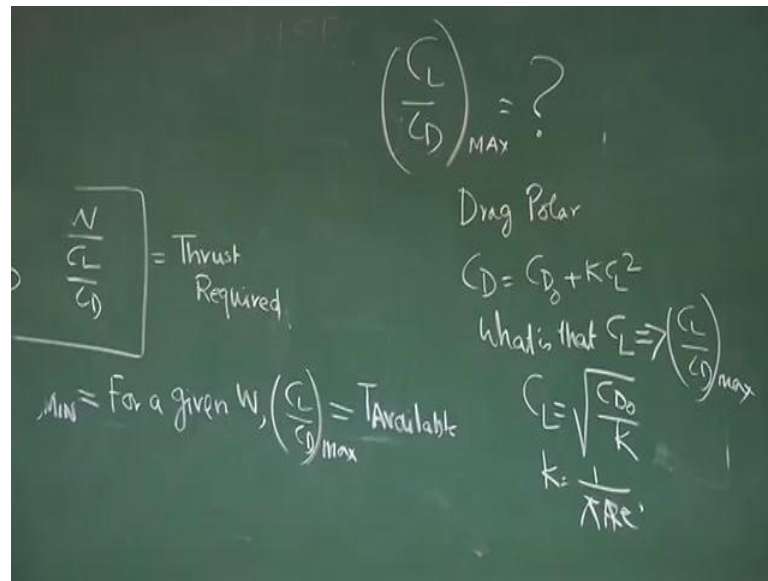 (C_L / C_D)_MAX = ?
Drag Polar
C_D = C_D0 + K C_L^2
What is that C_L => (C_L / C_D)_max
C_L = √(C_D0 / K)
k = 1 / πARe
W / (C_L / C_D) = Thrust Required
,MIN = For a given W, (C_L / C_D)_max = TAvailable